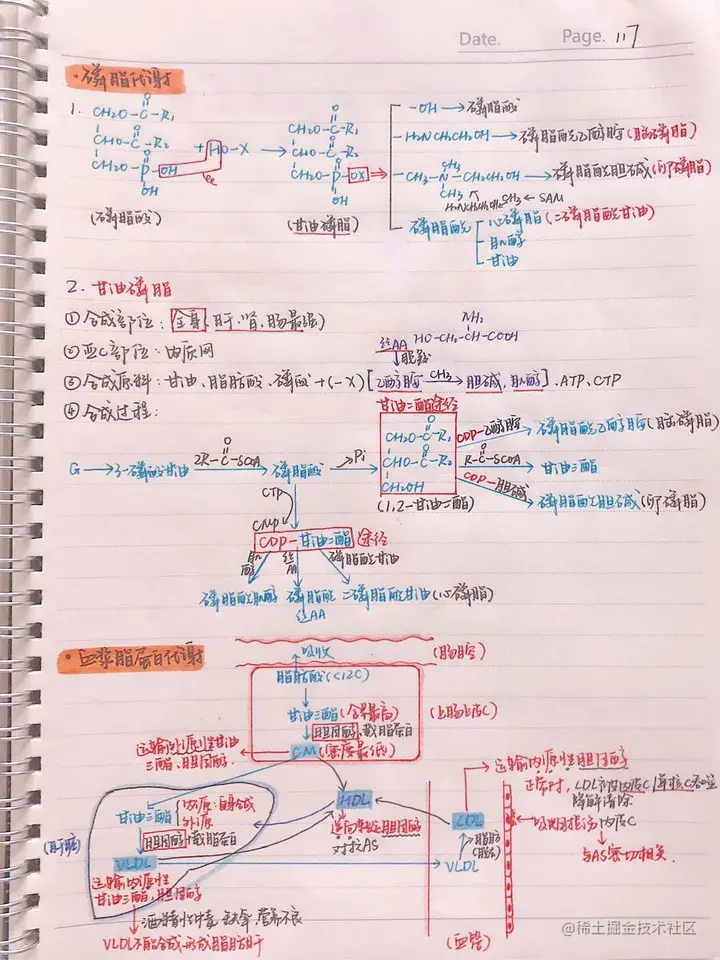 Date. Page. 117
·磷脂代谢
1.
CH₂O-C-R₁
CHO-C-R₂ + HO-X →
CH₂O-P-OH
OH
(磷脂酸)
CH₂O-C-R₁
CHO-C-R₂
CH₂O-P-OX
OH
(甘油磷脂)
-OH→磷脂酸
-H₂NCH₂CH₂OH→磷脂酰乙醇胺(脑磷脂)
-CH₃-N-CH₂CH₂OH→磷脂酰胆碱(卵磷脂)
CH₃ ← SAM
磷脂酰 心磷脂(二磷脂酰甘油)
肌醇
甘油
2. 甘油磷脂
①合成部位: 全身, 肝、肾、肠最强)
②亚C部位: 内质网
③合成原料: 甘油、脂肪酸、磷酸+(-X) [乙醇胺 CH₃→ 胆碱, 肌醇]. ATP、CTP
丝AA HO-CH₂-CH-COOH
NH₂
↓脱羧
④合成过程:
甘油二酯途径
G→3-磷酸甘油 2R-C-SCOA → 磷脂酸 →Pi
CH₂O-C-R₁
CHO-C-R₂
CH₂OH
(1,2-甘油二酯)
CDP-乙醇胺 磷脂酰乙醇胺(脑磷脂)
R-C-SCOA 甘油三酯
CDP-胆碱 磷脂酰胆碱(卵磷脂)
CTP
CMP
CDP-甘油二酯 途径
肌醇 丝AA 磷脂酰甘油
磷脂酰肌醇 磷脂酰丝AA 二磷脂酰甘油(心磷脂)
·血浆脂蛋白代谢
吸收 (肠腔)
脂肪酸(<12C)
甘油三酯(含量最高) (上肠上皮C)
胆固醇, 载脂蛋白
CM (密度最低)
运输外源性甘油三酯、胆固醇.
(肝脏)
甘油三酯 内源:自身合成
外源
胆固醇+载脂蛋白
VLDL
运输内源性
甘油三酯,胆固醇
VLDL不能合成,形成脂肪肝
HDL
逆向转运胆固醇
对抗AS
LDL
脂肪
VLDL
(血管)
运输内源性胆固醇
正常时, LDL
降解清除
内皮C
与AS密切相关.
@稀土掘金技术社区